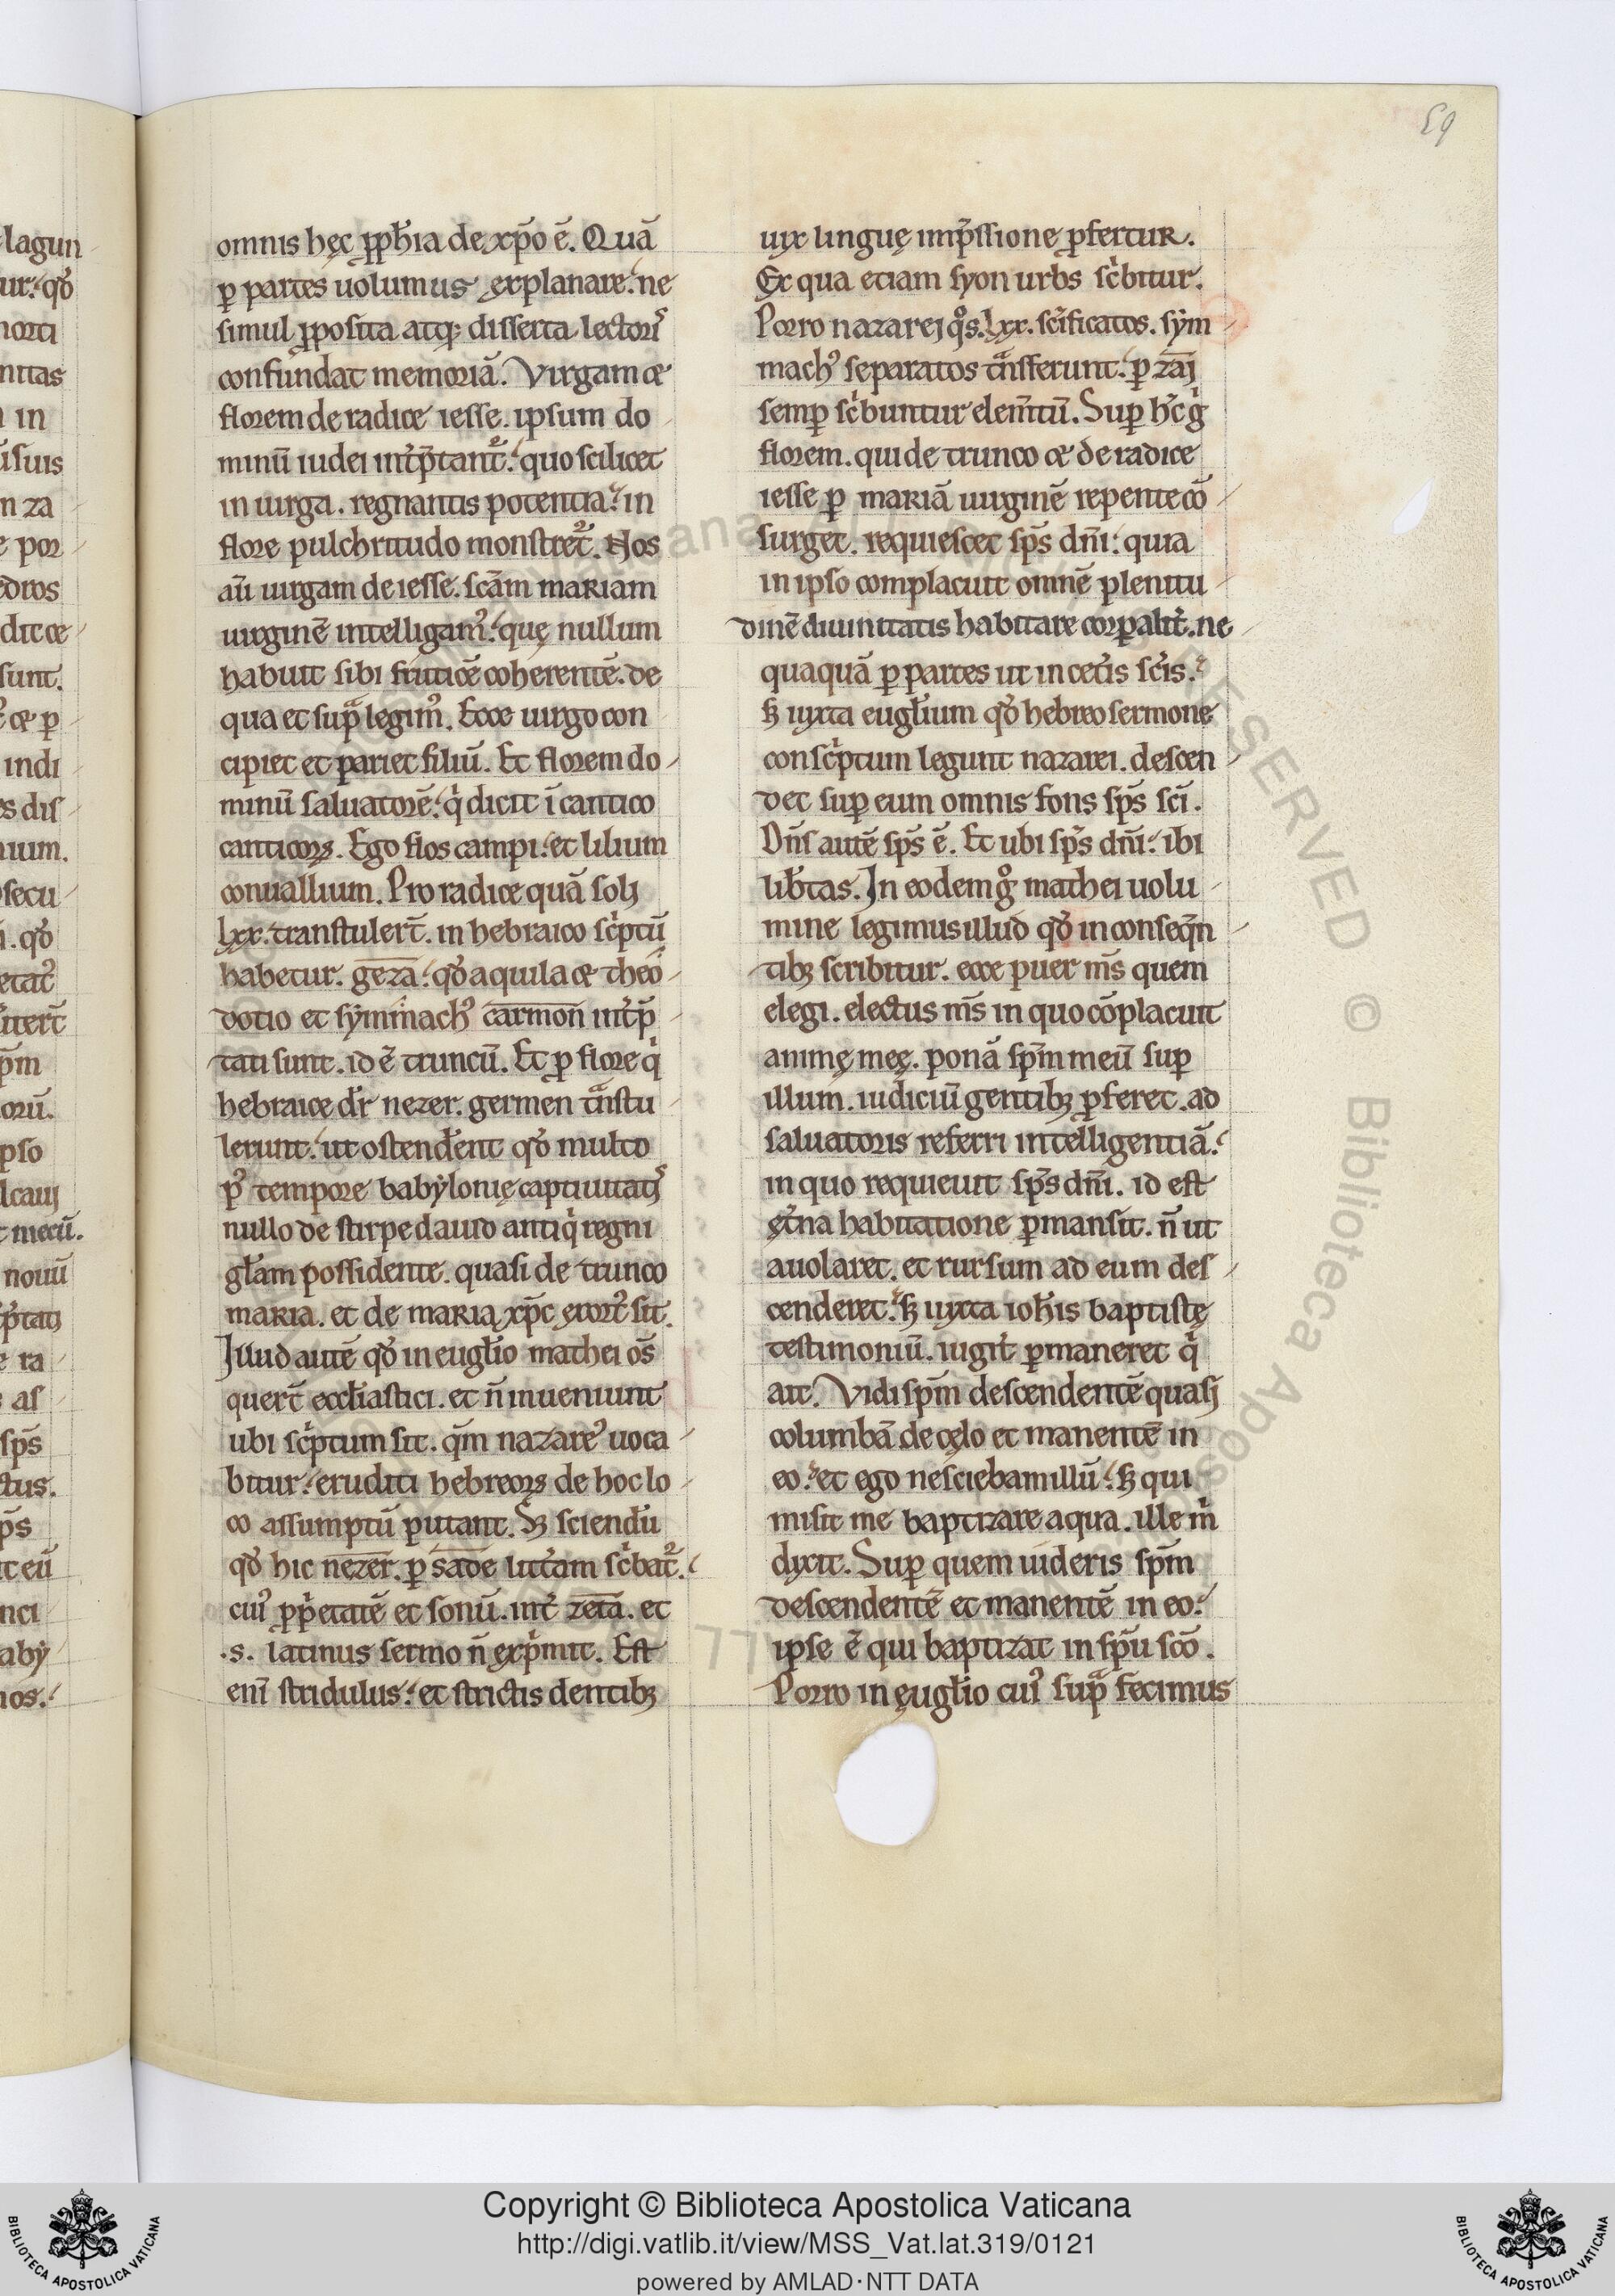 59
omnis hęc ꝓph̄ia de xp̄o ē. Quā
ꝑ partes uolumus explanare. ne
simul ꝓposita atq; disserta lectoris
confundat memoriā. Virgam &
florem de radice iesse. ipsum do
minū iudei int̄p̄tant᷑. quo scilicet
in uirga. regnantis potentia. in
flore pulchritudo monstret᷑. Nos
aū uirgam de iesse. sc̄am mariam
uirginē intelligam᷒. quę nullum
habuit sibi fruticē coherentē. de
qua et sup̄ legim᷒. Ecce uirgo con
cipiet et pariet filiū. Et florem do
minū saluatorē. q̇ dicit ī cantico
canticoꝝ. Ego flos campi. et lilium
conuallium. Pro radice quā soli
lxx. transtuler̄t. in hebraico sċptū
habetur. geza. qđ aquila & theo
dotio et symmach᷒ carmon int̄p̄
tati sunt. id ē truncū. Et ꝓ flore q̇
hebraice dr̄ nezer. germen tn̄stu
lerunt. ut ostend̄ent qđ multo
p᷒ tempore babylonię captiuitatis
nullo de stirpe dauid antiq̇ regni
gl̄am possidente. quasi de trunco
maria. et de maria xp̄c exort᷒ sit.
Illud autē qđ in eugl̄io mathei om̄s
quer̄t eccl̄iastici. et n̄ inueniunt
ubi sċptum sit. qm̄ nazare᷒ uoca
bitur. eruditi hebreoꝝ de hoc lo
co assumptū putant. Sꝫ sciend̄ū
qđ hic nezer. ꝑ sade litt̄am sċbat᷑.
cui᷒ ꝓṗetatē et sonū. int̄ zeta. et
.s. latinus sermo n̄ exṗmit. Est
eni᷒ stridulus. et strictis dentibꝫ
uix linguę imp̄ssione ꝓfertur.
Ex qua etiam syon urbs sċbitur.
Porro nazarei q̊s. lxx. sc̄ificatos. sym
mach᷒ separatos tn̄sferunt. ꝑ zai
semꝑ sċbuntur elem̄tū. Suꝑ hc̄ g̊
florem. qui de trunco & de radice
iesse ꝑ mariā uirginē repente cō
surget. requiescet sp̄s dn̄i. quia
in ipso complacuit omnē plenitu
dinē diuinitatis habitare corꝑalit̄. ne
quaquā ꝑ partes ut in cet̄is sc̄is.
sꝫ iuxta eugl̄ium qđ hebreo sermone
consċptum legunt nazarei. descen
det suꝑ eum omnis fons sp̄s sc̄i.
Dn̄s autē sp̄s ē. Et ubi sp̄s dn̄i. ibi
lib̄tas. In eodem g̊ mathei uolu
mine legimus illud qđ in conseq̄n
tibꝫ scribitur. ecce puer m̄s quem
elegi. electus m̄s in quo cōplacuit
animę męę. ponā sp̄m meū suꝑ
illum. iudiciū gentibꝫ ꝓferet. ad
saluatoris referri intelligentiā.
in quo requieuit sp̄s dn̄i. id est
ęt̄na habitatione ꝑmansit. n̄ ut
auolaret. et rursum ad eum des
cenderet. sꝫ iuxta ioh̄is baptistę
testimoniū. iugit̄ ꝑmaneret q̇
ait. Vidi sp̄m descendentē quasi
columbā de cęlo et manentē in
eo. et ego nesciebam illū. sꝫ qui
misit me baptizare aqua. ille ṁ
dixit. Suꝑ quem uideris sp̄m
descendentē et manentē in eo.
ipse ē qui baptizat in sp̄u sc̄o.
Porro in ęugl̄io cui᷒ sup̄ fecimus
Copyright © Biblioteca Apostolica Vaticana
http://digi.vatlib.it/view/MSS_Vat.lat.319/0121
powered by AMLAD·NTT DATA